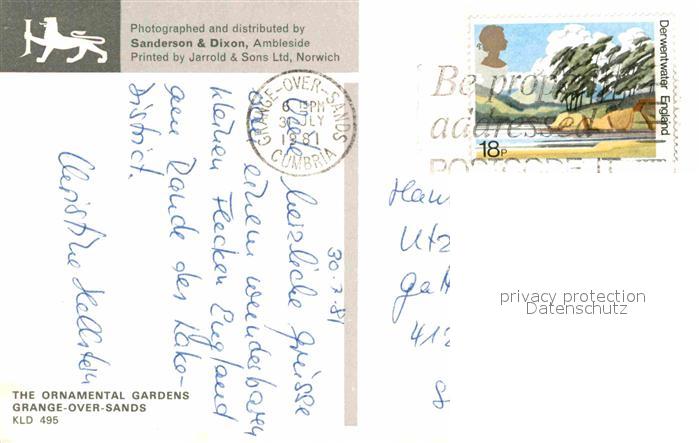 Photographed and distributed by
Sanderson & Dixon, Ambleside
Printed by Jarrold & Sons Ltd, Norwich
GRANGE-OVER-SANDS
6 PM
1981
CUMBRIA
Be prop
addresse
POSTCODE IT
Derwentwater England
18P
30.7.81
herzliche Grüsse
aus einem wunderbaren
kleinen Flecken England
am Rande des Lake-
District.
Christine
Utz
privacy protection
Datenschutz
THE ORNAMENTAL GARDENS
GRANGE-OVER-SANDS
KLD 495